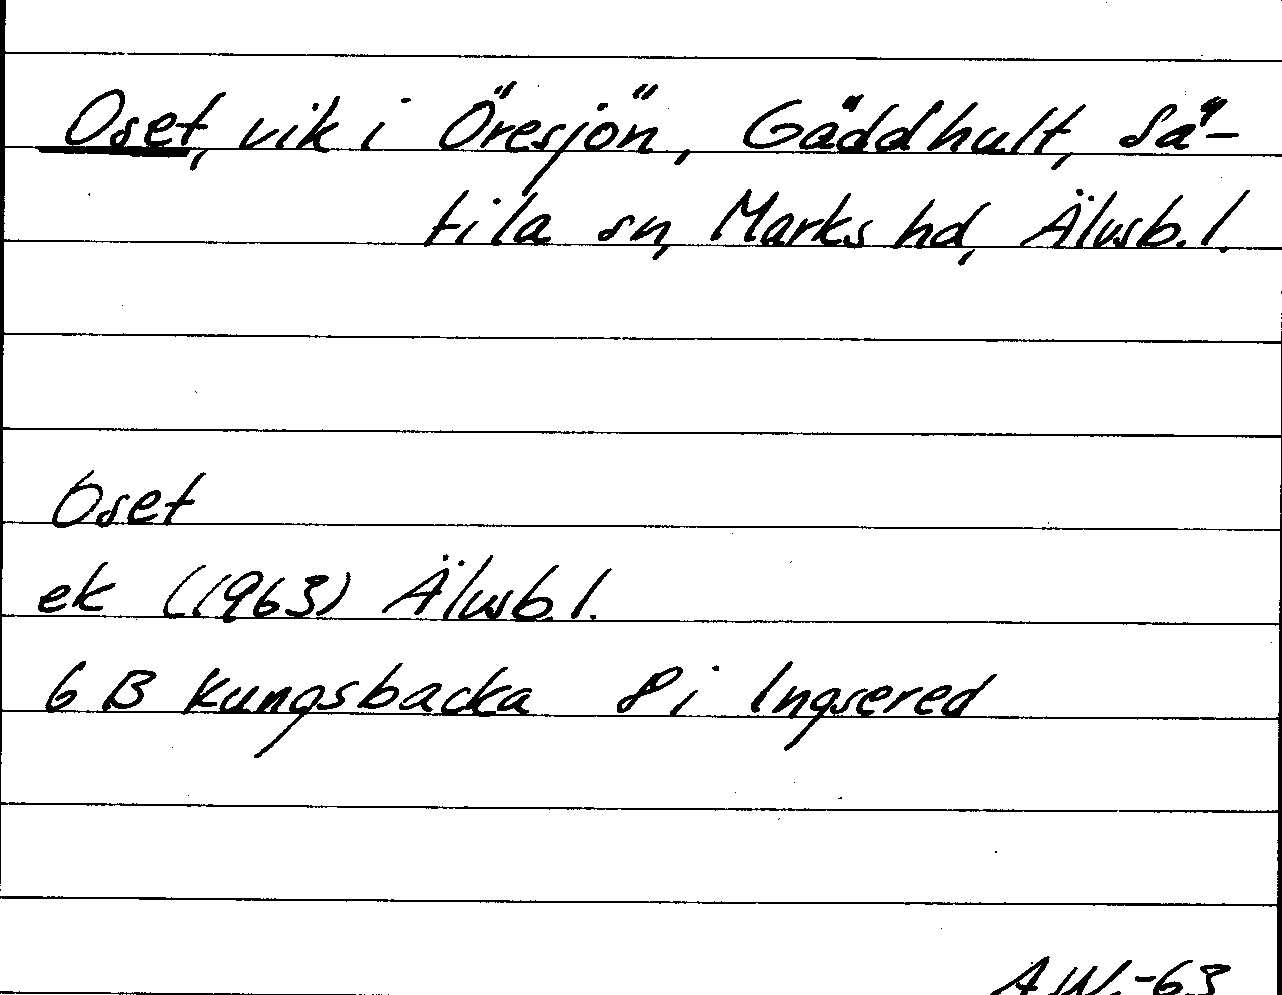 Oset, vik i Öresjön, Gäddhult, Sä-
tila sn, Marks hd, Älvsb. l.
Oset
ek (1963) Älvsb. l.
6 B Kungsbacka 8 i Ingsered
A.W.-63